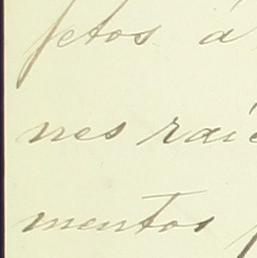 fetos á
nes raíc
mentos